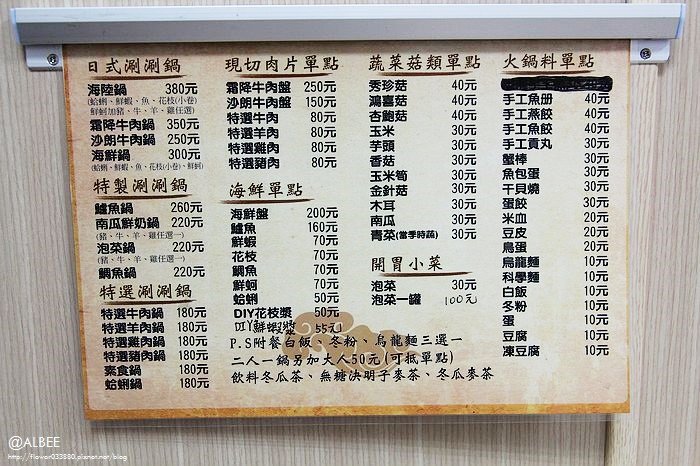 日式涮涮鍋
海陸鍋 380元
(蛤蜊、鮮蝦、魚、花枝(小卷)
鮮蚵加豬、牛、羊、雞任選)
霜降牛肉鍋 350元
沙朗牛肉鍋 250元
海鮮鍋 300元
(蛤蜊、鮮蝦、魚、花枝(小卷)、鮮蚵)
特製涮涮鍋
鱸魚鍋 260元
南瓜鮮奶鍋 220元
(豬、牛、羊、雞任選一)
泡菜鍋 220元
(豬、牛、羊、雞任選一)
鯛魚鍋 220元
特選涮涮鍋
特選牛肉鍋 180元
特選羊肉鍋 180元
特選雞肉鍋 180元
特選豬肉鍋 180元
素食鍋 180元
蛤蜊鍋 180元
現切肉片單點
霜降牛肉盤 250元
沙朗牛肉盤 150元
特選牛肉 80元
特選羊肉 80元
特選雞肉 80元
特選豬肉 80元
海鮮單點
海鮮盤 200元
鱸魚 160元
鮮蝦 70元
花枝 70元
鯛魚 70元
鮮蚵 70元
蛤蜊 50元
DIY花枝漿 50元
DIY鮮蝦漿 55元
蔬菜菇類單點
秀珍菇 40元
鴻喜菇 40元
杏鮑菇 40元
玉米 30元
芋頭 30元
香菇 30元
玉米筍 30元
金針菇 30元
木耳 30元
南瓜 30元
青菜(當季時蔬) 30元
開胃小菜
泡菜 30元
泡菜一罐 100元
火鍋料單點
手工魚册 40元
手工燕餃 40元
手工魚餃 40元
手工貢丸 30元
蟹棒 30元
魚包蛋 30元
干貝燒 30元
蛋餃 30元
米血 20元
豆皮 20元
鳥蛋 20元
烏龍麵 10元
科學麵 10元
白飯 10元
冬粉 10元
蛋 10元
豆腐 10元
凍豆腐 10元
P.S附餐白飯、冬粉、烏龍麵三選一
二人一鍋另加大人50元(可抵單點)
飲料冬瓜茶、無糖決明子麥茶、冬瓜麥茶
@ALBEE
http://flower033880.pixnet.net/blog